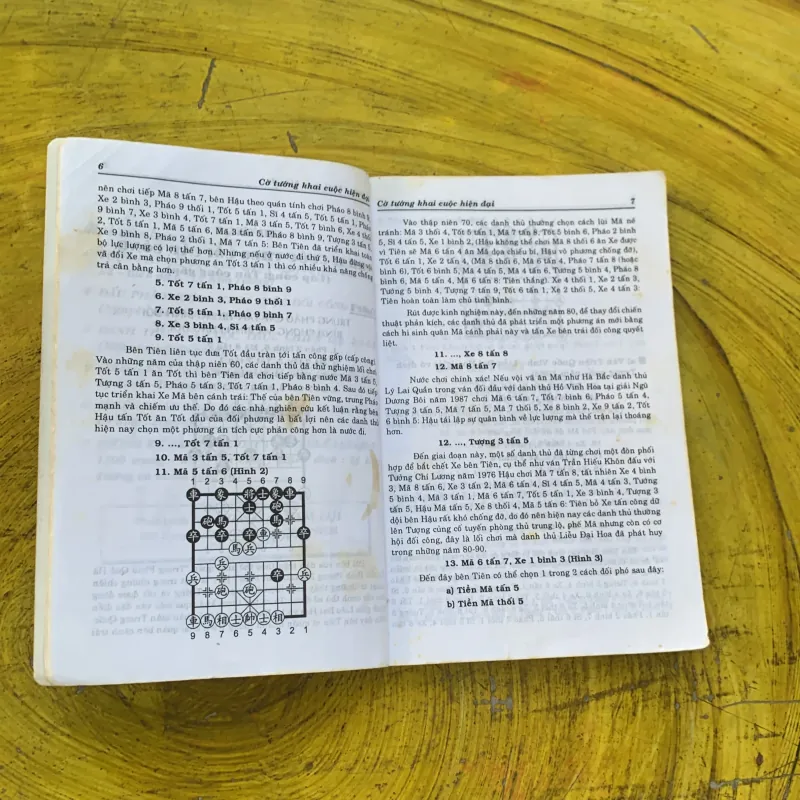 6
Cờ tướng khai cuộc hiện đại
nên chơi tiếp Mã 8 tấn 7, bên Hậu theo quán tính chơi Pháo 8 bình 9,
Xe 2 bình 3, Pháo 9 thối 1, Tốt 5 tấn 1, Sĩ 4 tấn 5, Tốt 5 tấn 1, Pháo
9 bình 7, Xe 3 bình 4, Tốt 7 tấn 1, Mã 3 tấn 5, Tốt 7 bình 6, Xe 4 thối
2, Tốt 5 tấn 1, Mã 5 tấn 6, Mã 3 tấn 5, Pháo 8 bình 9, Tượng 3 tấn 5,
Xe 9 bình 8, Pháo 2 thối 1, Mã 7 tấn 5: Bên Tiên đã triển khai toàn
bộ lực lượng có lợi thế hơn. Nhưng nếu ở nước đi thứ 5, Hậu đừng vội
vã đổi Xe mà chọn phương án Tốt 3 tấn 1 thì có nhiều khả năng chống
trả cân bằng hơn.
5. Tốt 7 tấn 1, Pháo 8 bình 9
6. Xe 2 bình 3, Pháo 9 thối 1
7. Tốt 5 tấn 1, Pháo 9 bình 7
8. Xe 3 bình 4, Sĩ 4 tấn 5
9. Tốt 5 tấn 1
Bên Tiên liên tục đưa Tốt đầu tràn tới tấn công gấp (cấp công)
Vào những năm của thập niên 60, các danh thủ đã thử nghiệm lối chơi
Tốt 5 tấn 1 ăn Tốt thì bên Tiên đã chơi tiếp bằng nước Mã 3 tấn 5,
Tượng 3 tấn 5, Pháo 5 tấn 3, Tốt 7 tấn 1, Pháo 8 bình 4. Sau đó tiếp
tục triển khai Xe Mã bên cánh trái: Thế của bên Tiên vững, trung Pháo
mạnh và chiếm ưu thế. Do đó các nhà nghiên cứu kết luận rằng bên
Hậu tấn Tốt ăn Tốt đầu của đối phương là bất lợi nên các danh thủ
hiện nay chọn một phương án tích cực phản công hơn là nước đi.
9. ..., Tốt 7 tấn 1
10. Mã 3 tấn 5, Tốt 7 tấn 1
11. Mã 5 tấn 6 (Hình 2)
1 2 3 4 5 6 7 8 9
9 8 7 6 5 4 3 2 1
Cờ tướng khai cuộc hiện đại
7
Vào thập niên 70, các danh thủ thường chọn cách lùi Mã né
tránh: Mã 3 thối 4, Tốt 5 tấn 1, Mã 7 tấn 8, Tốt 5 bình 6, Pháo 2 bình
5, Sĩ 4 tấn 5, Xe 1 bình 2, (Hậu không thể chơi Mã 8 thối 6 ăn Xe được
vì Tiên sẽ Mã 6 tấn 4 ăn Mã dọa chiếu bí, Hậu vô phương chống đỡ),
Tốt 6 tấn 1, Xe 2 tấn 4, (Mã 8 thối 6, Mã 6 tấn 4, Pháo 7 tấn 8 (hoặc
bình 6), Tốt 6 bình 5, Mã 4 tấn 5, Mã 4 tấn 6, Tướng 5 bình 4, Pháo 8
bình 6, Mã 5 tấn 4, Mã 6 tấn 8: Tiên thắng). Xe 4 thối 1, Xe 2 tấn 3,
Tướng 5 bình 4, Tượng 7 tấn 9, Tốt 6 tấn 1, Xe 2 tấn 5, Xe 4 tấn 3:
Tiên hoàn toàn làm chủ tình hình.
Rút được kinh nghiệm này, đến những năm 80, để thay đổi chiến
thuật phản kích, các danh thủ đã phát triển một phương án mới bằng
cách hi sinh quân Mã cánh phải này và tấn Xe bên trái đối công quyết
liệt.
11. ..., Xe 8 tấn 8
12. Mã 8 tấn 7
Nước chơi chính xác! Nếu vội vã ăn Mã như Hà Bắc danh thủ
Lý Lai Quần trong ván đối đầu với danh thủ Hồ Vinh Hoa tại giải Ngũ
Dương Bôi năm 1987 chơi Mã 6 tấn 7, Tốt 7 bình 6, Pháo 5 tấn 4,
Tượng 3 tấn 5, Mã 7 tấn 5, Mã 7 thối 5, Xe 8 bình 2, Xe 9 tấn 2, Tốt
6 bình 5: Hậu tái lập sự quân bình về lực lượng mà thế trận lại thoáng
hơn.
12. ..., Tượng 3 tấn 5
Đến giai đoạn này, một số danh thủ đã từng chơi một đòn phối
hợp để bắt chết Xe bên Tiên, cụ thể như ván Trần Hiếu Khôn đấu với
Tưởng Chí Lương năm 1976 Hậu chơi Mã 7 tấn 8, tất nhiên Xe 4 bình
3, Mã 8 tấn 6, Xe 3 tấn 2, Mã 6 tấn 4, Sĩ 4 tấn 5, Mã 4 tấn 3, Tướng
5 bình 4, Mã 3 tấn 1, Mã 6 tấn 7, Tốt 5 tấn 1, Xe 3 bình 4, Tượng 3
tấn 5, Hậu Mã tấn 5, Xe 8 thối 4, Mã 5 tấn 6: Tiên bỏ Xe tấn công dữ
dội bên Hậu rất khó chống đỡ, do đó nên hiện nay các danh thủ thường
lên Tượng củng cố tuyến phòng thủ trung lộ, phế Mã nhưng còn có cơ
hội đối công, đây là lối chơi mà danh thủ Liễu Đại Hoa đã phát huy
trong những năm 80-90.
13. Mã 6 tấn 7, Xe 1 bình 3 (Hình 3)
Đến đây bên Tiên có thể chọn 1 trong 2 cách đối phó sau đây:
a) Tiền Mã tấn 5
b) Tiền Mã thối 5